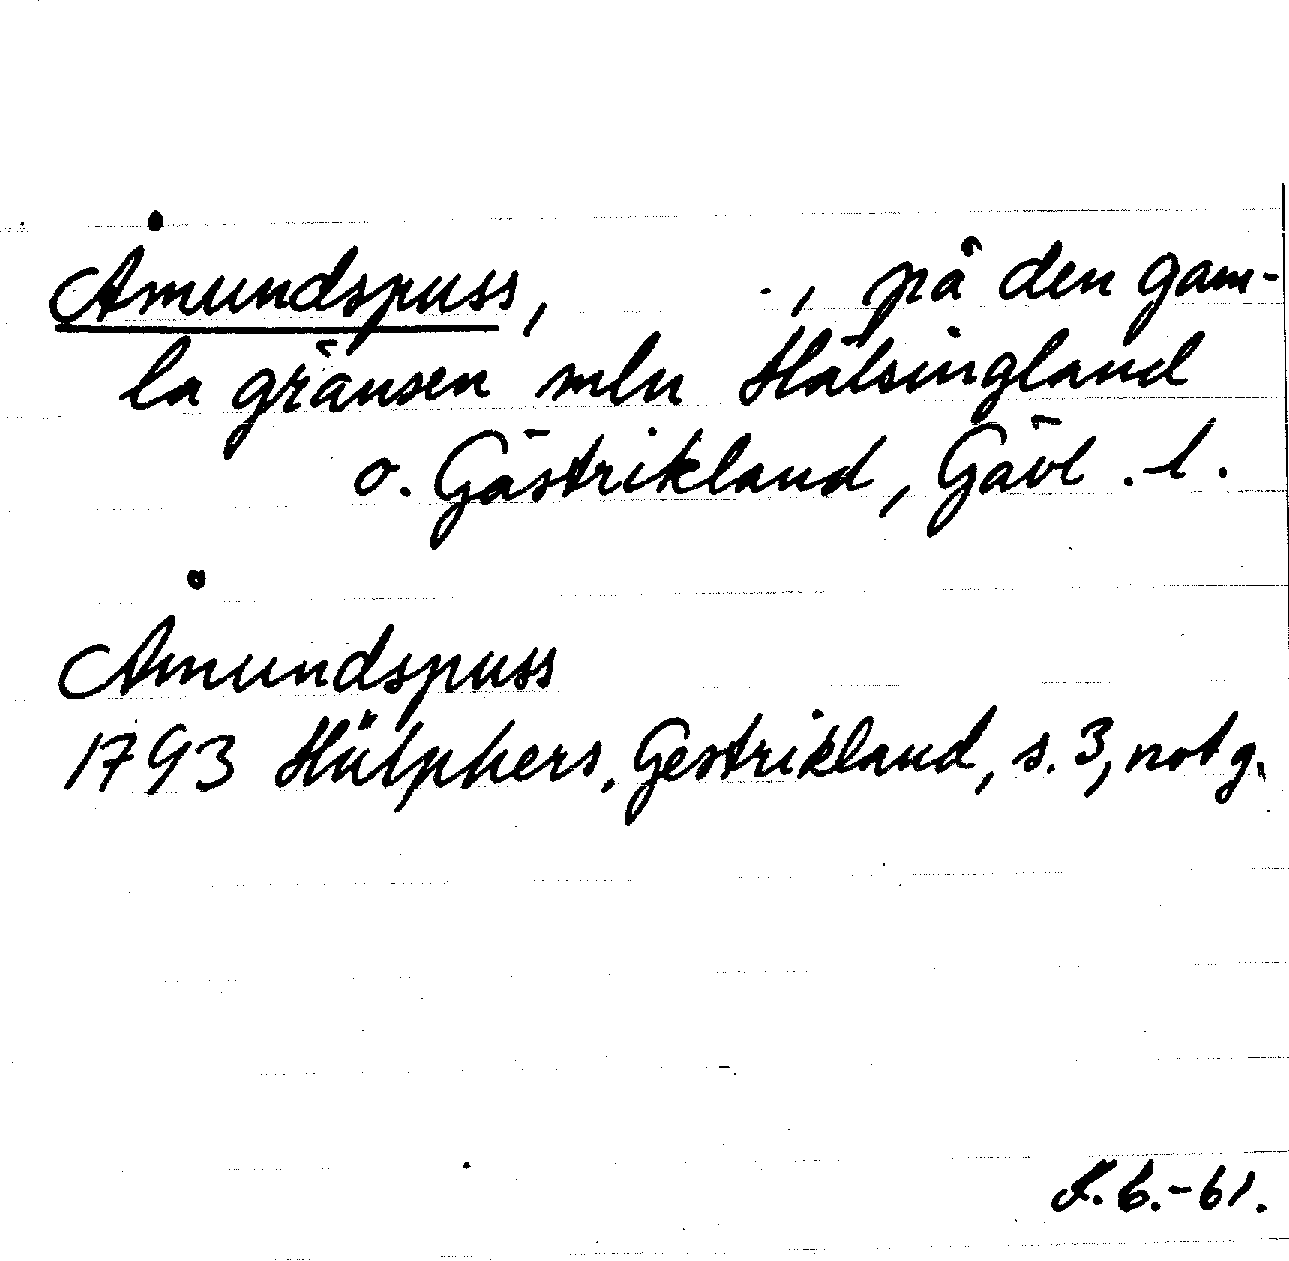 Åmundspuss, . , på den gam-
la gränsen mln Hälsingland
o. Gästrikland, Gävl. l.
Åmundspuss
1793 Hülphers, Gestrikland, s. 3, not g.
-61.